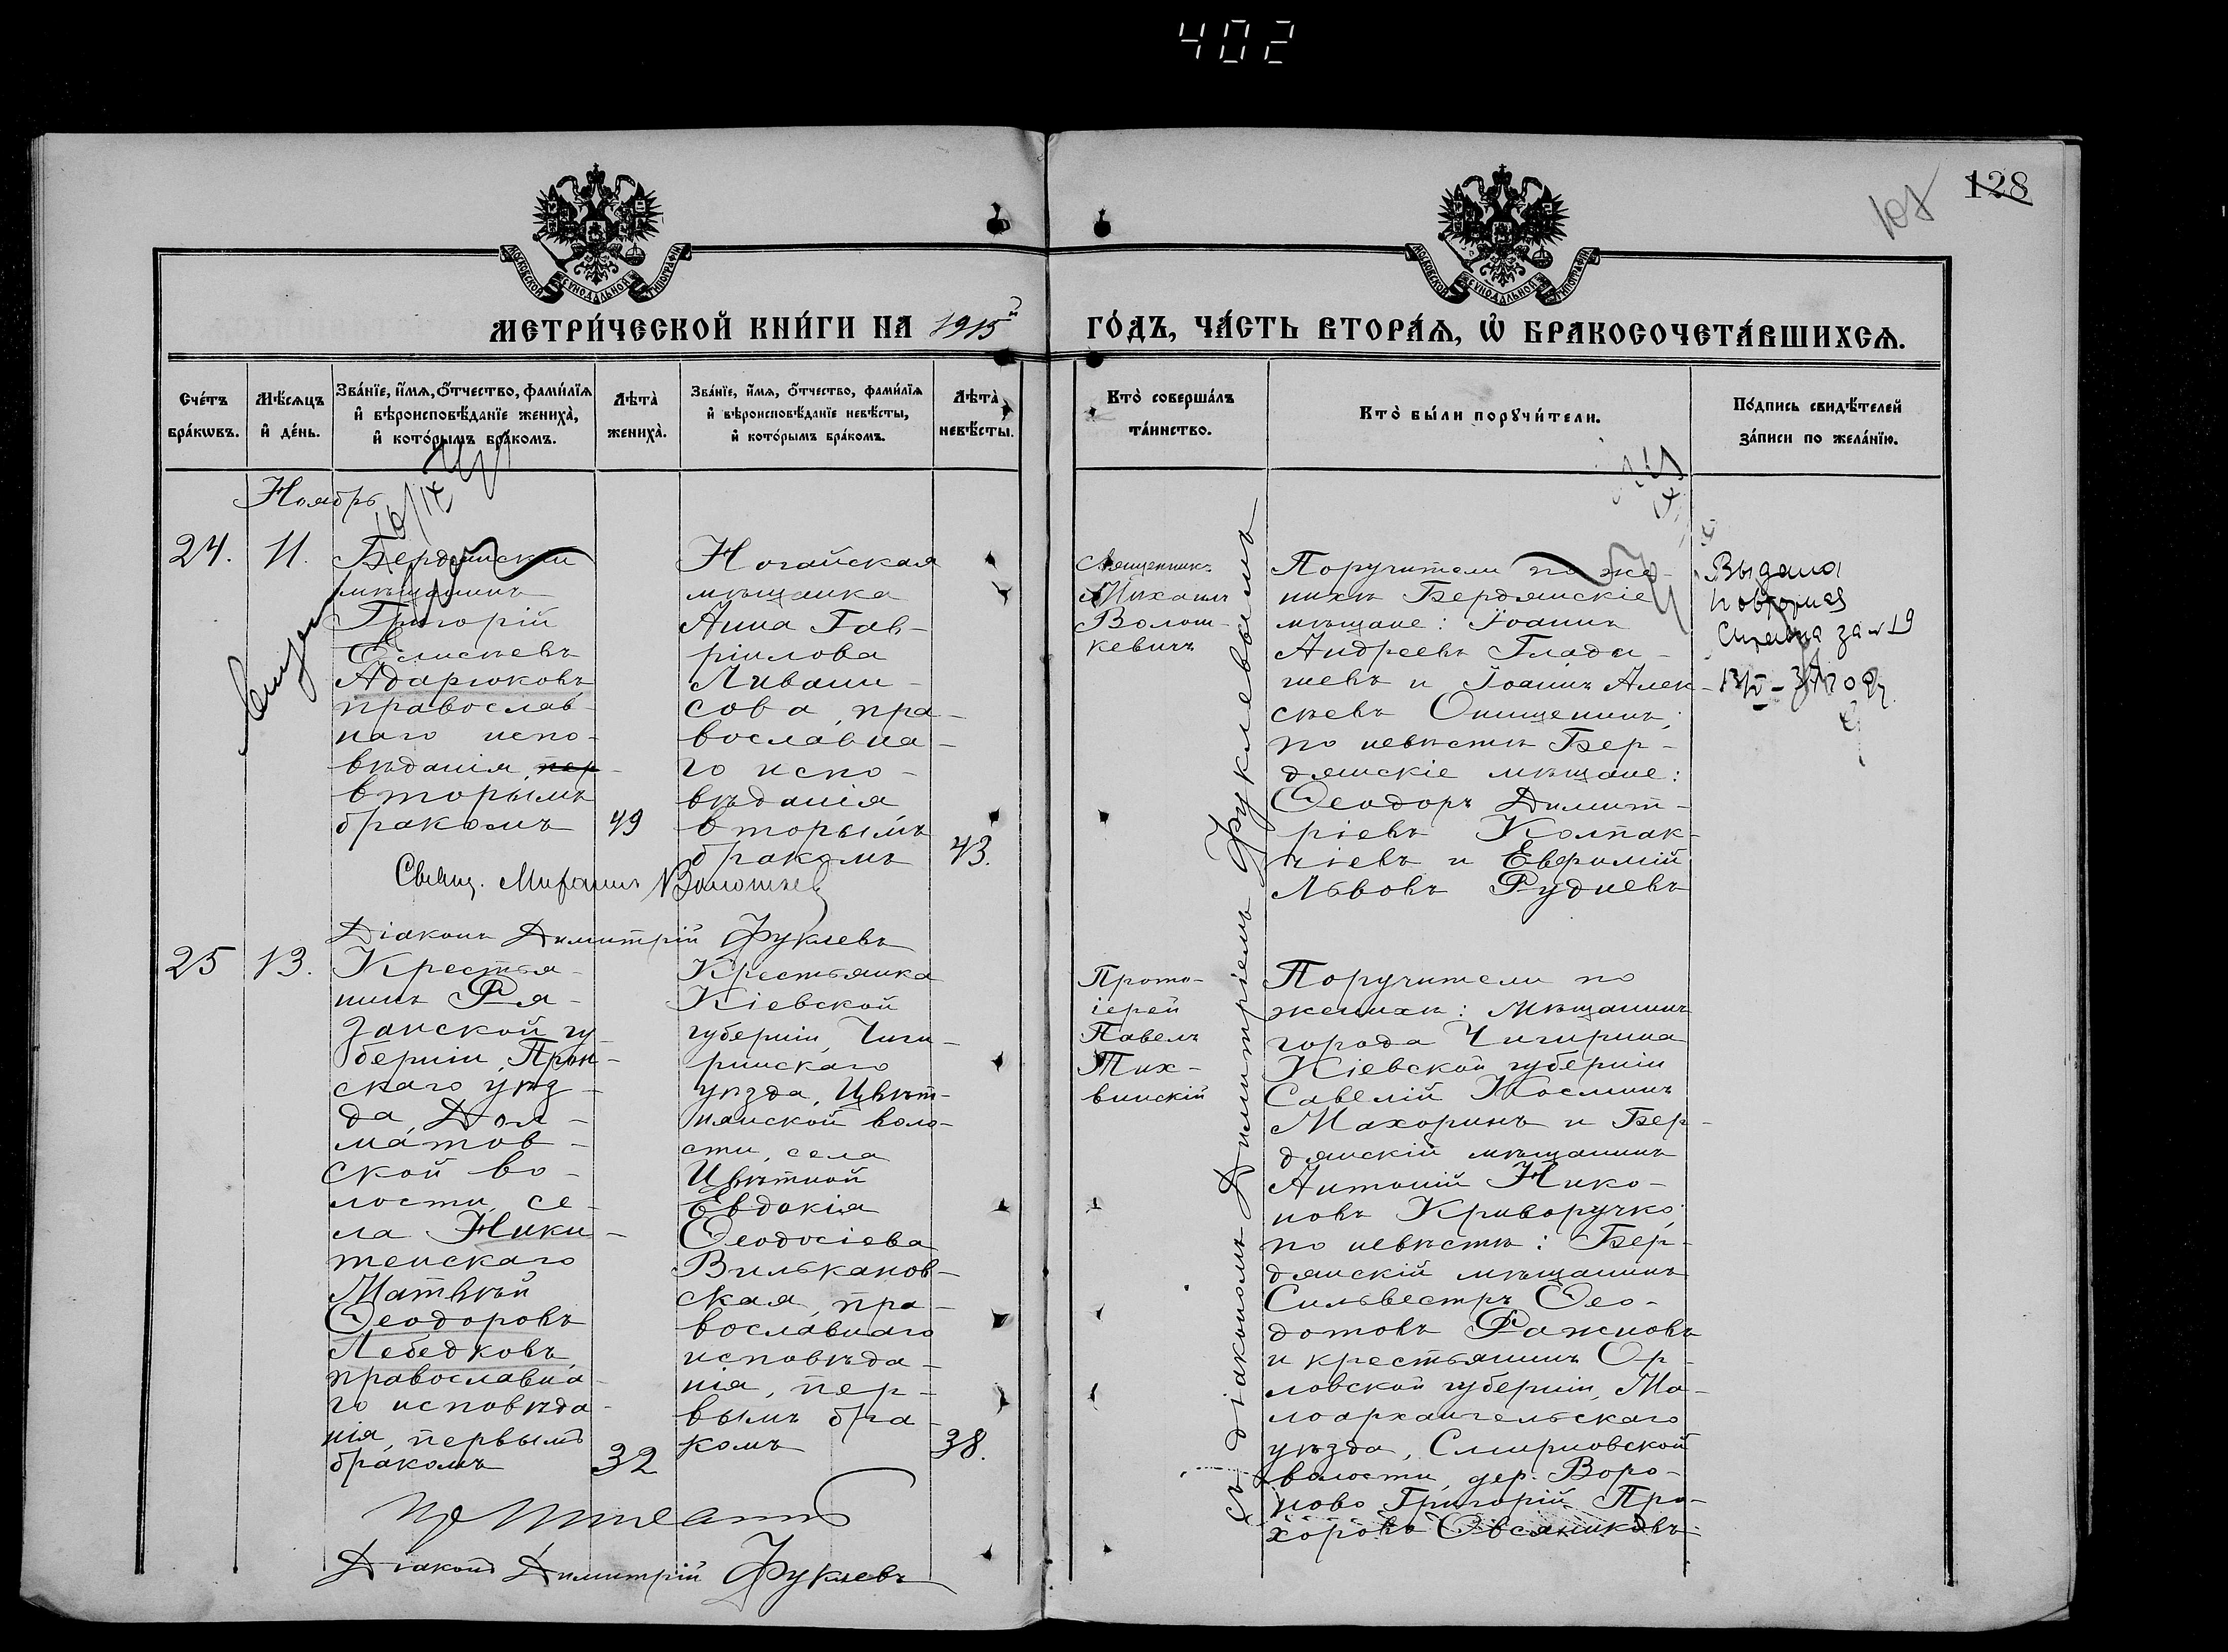 402
128
108
МОСКОВСКОЙ СѴНОДАЛЬНОЙ ТИПОГРАФІИ
МОСКОВСКОЙ СѴНОДАЛЬНОЙ ТИПОГРАФІИ
МЕТРИ́ЧЕСКОЙ КНИ́ГИ НА 1915й
ГО́ДЪ, ЧА́СТЬ ВТОРА́Ѧ, Ѽ БРАКОСОЧЕТА́ВШИХСѦ.
Сче́тъ
бра́кѡвъ.
Мѣ́сѧцъ
и҆ де́нь.
Зва́нїе, и҆́мѧ, о҆́тчество, фами́лїѧ
и҆ вѣроисповѣ́данїе жениха̀,
и҆ кото́рымъ бра́комъ.
Лѣта̀
жениха̀.
Зва́нїе, и҆́мѧ, о҆́тчество, фами́лїѧ
и҆ вѣроисповѣ́данїе невѣ́сты,
и҆ кото́рымъ бра́комъ.
Лѣта̀
невѣ́сты.
Кто̀ соверша́лъ
та́инство.
Кто̀ бы́ли порꙋчи́тели.
По́дпись свидѣ́телей
за́писи по жела́нїю.
Ноябрь
24.
11.
Бердянскій
мѣщанинъ
Григорій
Елисѣевъ
Адарюковъ
православ-
наго испо-
вѣданія, пер-
вторымъ
бракомъ
49
Ногайская
мѣщанка
Анна Гав-
ріилова
Ливани-
сова, пра-
вославна-
го испо-
вѣданія
вторымъ
бракомъ
43.
Священникъ
Михаилъ
Волот-
кевичъ
Поручители по же-
нихѣ Бердянскіе
мѣщане: Іоаннъ
Андреевъ Глады-
шевъ и Іоаннъ Алек-
сѣевъ Онищенинъ;
по невѣстѣ Бер-
дянскіе мѣщане:
Ѳеодоръ Димит-
ріевъ Колпак-
чіевъ и Евфимій
Львовъ Рудневъ
Выдана
повторная
за № 19
Свящ. Михаилъ
Діаконъ Димитрій Фуклевъ
25
13.
Крестья-
нинъ Ря-
занской гу-
берніи, Прон-
скаго уѣз-
да, Дол-
матов-
ской во-
лости, се-
ла Ники-
тенскаго
Матвѣй
Ѳеодоровъ
Лебедковъ,
православна-
го исповѣда-
нія, первымъ
бракомъ
32
Крестьянка
Кіевской
губерніи, Чиги-
ринскаго
уѣзда, Цвѣт-
нянской воло-
сти, села
Цвѣтной
Евдокія
Ѳеодосіева
Вильканов-
ская, пра-
вославнаго
исповѣда-
нія, пер-
вымъ бра-
комъ
38.
Прото-
іерей
Павелъ
Тих-
винскій
съ діакономъ Димитріемъ Фуклевымъ
Поручители по
женихѣ: Мѣщанинъ
города Чигирина
Кіевской губерніи
Савелій Косминъ
Махоринъ и Бер-
дянскій мѣщанинъ
Антоній Нико-
новъ Криворучко;
по невѣстѣ: Бер-
дянскій мѣщанинъ
Сильвестръ Ѳео-
дотовъ Ражновъ
и крестьянинъ Ор-
ловской губерніи, Ма-
лоархангельскаго
уѣзда, Смирновской
волости, дер. Воро-
ново Григорій Про-
хоровъ Овсяниковъ.
Діаконъ Димитрій Фуклевъ